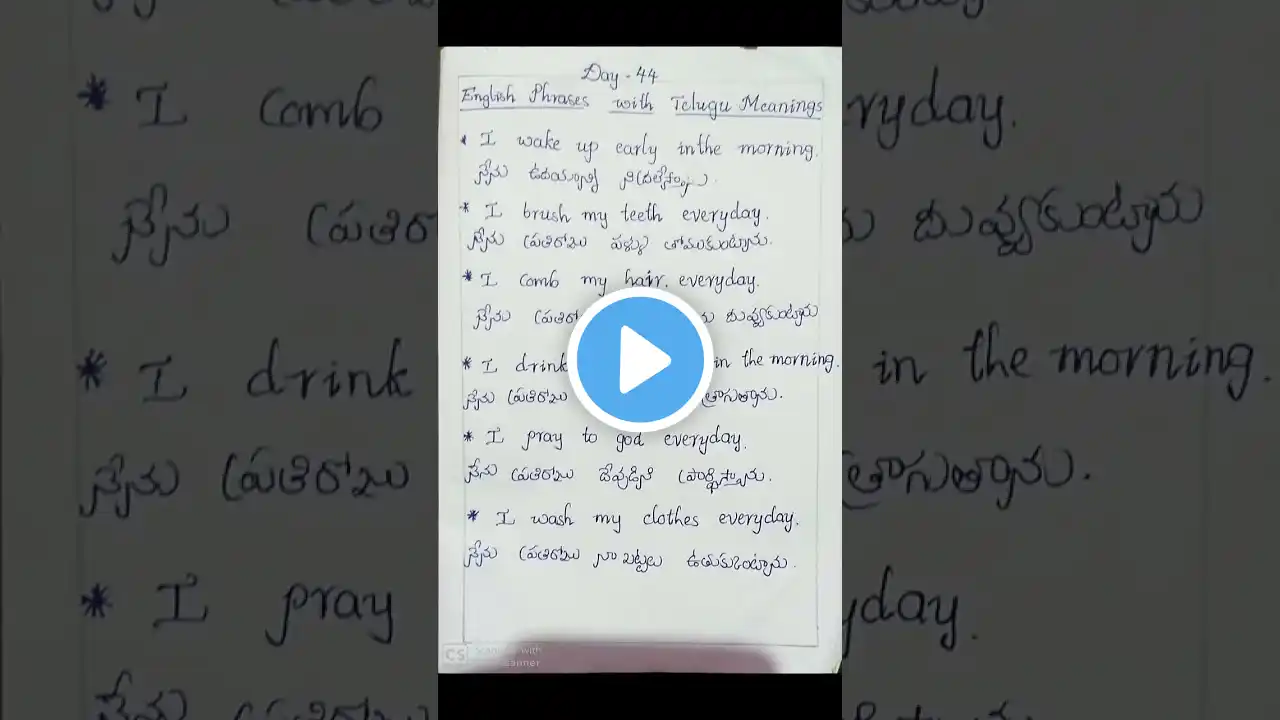 Day - 44
English Phrases with Telugu Meanings
* I wake up early inthe morning.
నేను ఉదయాన్నే నిద్రలేస్తాను.
* I brush my teeth everyday.
నేను ప్రతిరోజు పళ్ళు తోముకుంటాను.
* I comb my hair. everyday.
నేను ప్రతిరో దువ్వుకుంటాను
* I drink in the morning.
నేను ప్రతిరోజు త్రాగుతాను.
* I pray to god everyday.
నేను ప్రతిరోజు దేవుడిని ప్రార్థిస్తాను.
* I wash my clothes everyday.
నేను ప్రతిరోజు నా బట్టలు ఉతుకుంటాను.
CS